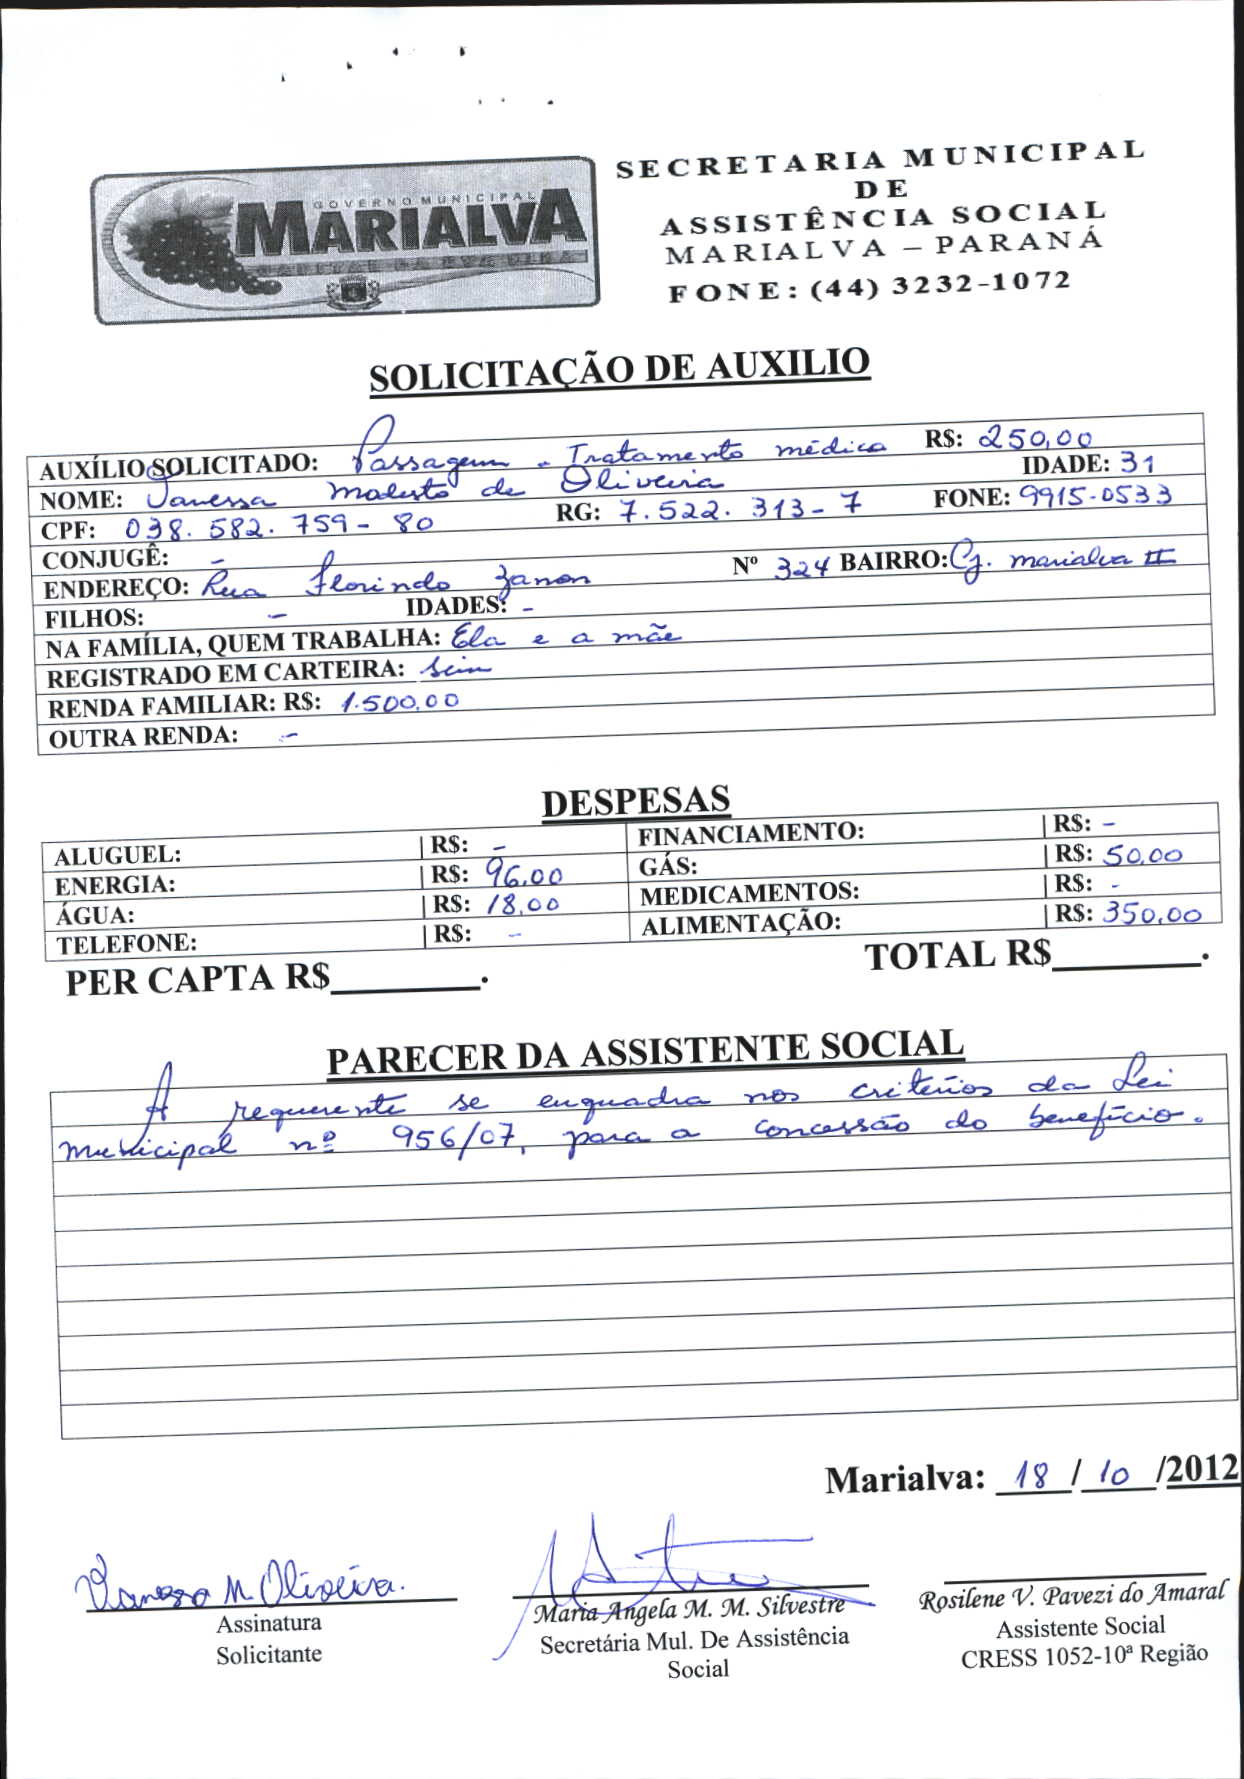 GOVERNO MUNICIPAL
MARIALVA
CAPITAL DA UVA FINA
SECRETARIA MUNICIPAL
DE
ASSISTÊNCIA SOCIAL
MARIALVA – PARANÁ
FONE: (44) 3232-1072
SOLICITAÇÃO DE AUXILIO
AUXÍLIO SOLICITADO: Passagem - Tratamento médico R$: 250,00
NOME: Vanessa Modesto de Oliveira IDADE: 31
CPF: 038.582.759-80 RG: 7.522.313-7 FONE: 9915-0533
CONJUGÊ: -
ENDEREÇO: Rua Florindo Zanon Nº 324 BAIRRO: Cj. Marialva II
FILHOS: - IDADES: -
NA FAMÍLIA, QUEM TRABALHA: Ela e a mãe
REGISTRADO EM CARTEIRA: Sim
RENDA FAMILIAR: R$: 1.500,00
OUTRA RENDA: -
DESPESAS
ALUGUEL: R$: - FINANCIAMENTO: R$: -
ENERGIA: R$: 96,00 GÁS: R$: 50,00
ÁGUA: R$: 18,00 MEDICAMENTOS: R$: -
TELEFONE: R$: - ALIMENTAÇÃO: R$: 350,00
PER CAPTA R$________. TOTAL R$________.
PARECER DA ASSISTENTE SOCIAL
A requerente se enquadra nos critérios da Lei
Municipal nº 956/07, para a concessão do benefício.
Marialva: 18/10/2012
Vanessa M. Oliveira.
Assinatura
Solicitante
Maria Angela M. M. Silvestre
Secretária Mul. De Assistência
Social
Rosilene V. Pavezi do Amaral
Assistente Social
CRESS 1052-10ª Região